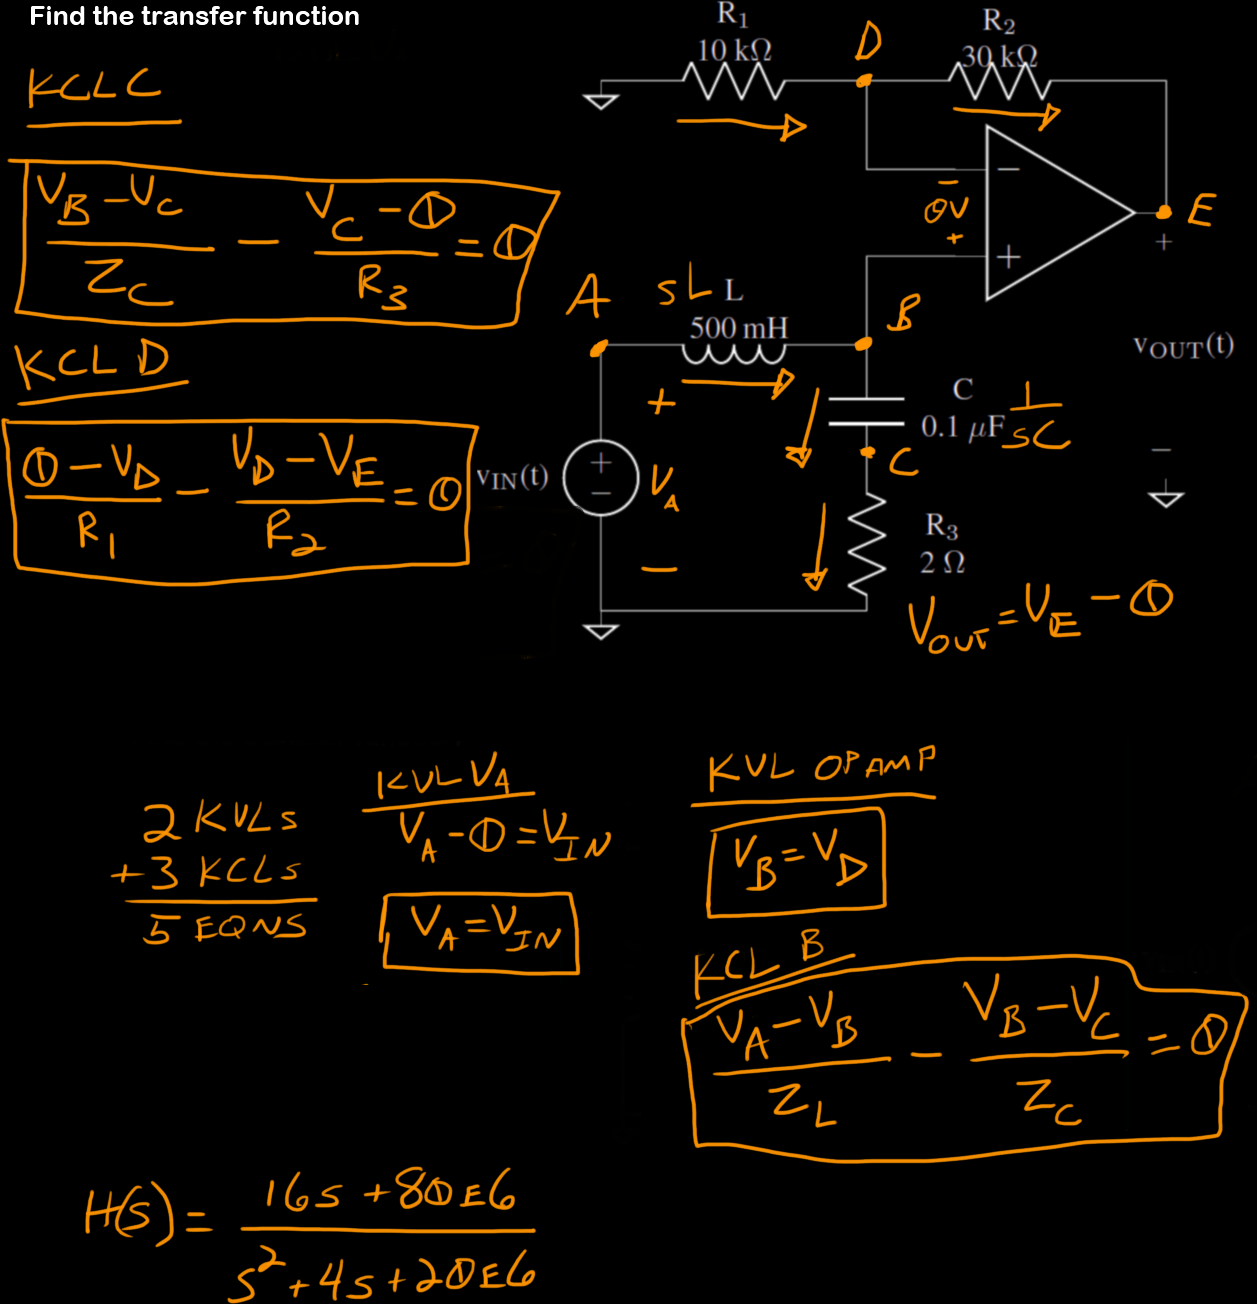 Find the transfer function
KCL C
V_B - V_C / Z_C - V_C - 0 / R_3 = 0
KCL D
0 - V_D / R_1 - V_D - V_E / R_2 = 0
R1
10 kΩ
D
R2
30 kΩ
−
0V
+
−
+
E
+
vOUT(t)
−
A
sL L
500 mH
B
+
vIN(t)
+
−
V_A
−
C
0.1 μF 1/sC
C
R3
2 Ω
V_OUT = V_E - 0
2 KVLs
+3 KCLs
5 EQNS
KVL V_A
V_A - 0 = V_IN
V_A = V_IN
KVL OPAMP
V_B = V_D
KCL B
V_A - V_B / Z_L - V_B - V_C / Z_C = 0
H(s) = 16s + 80E6 / s² + 4s + 20E6